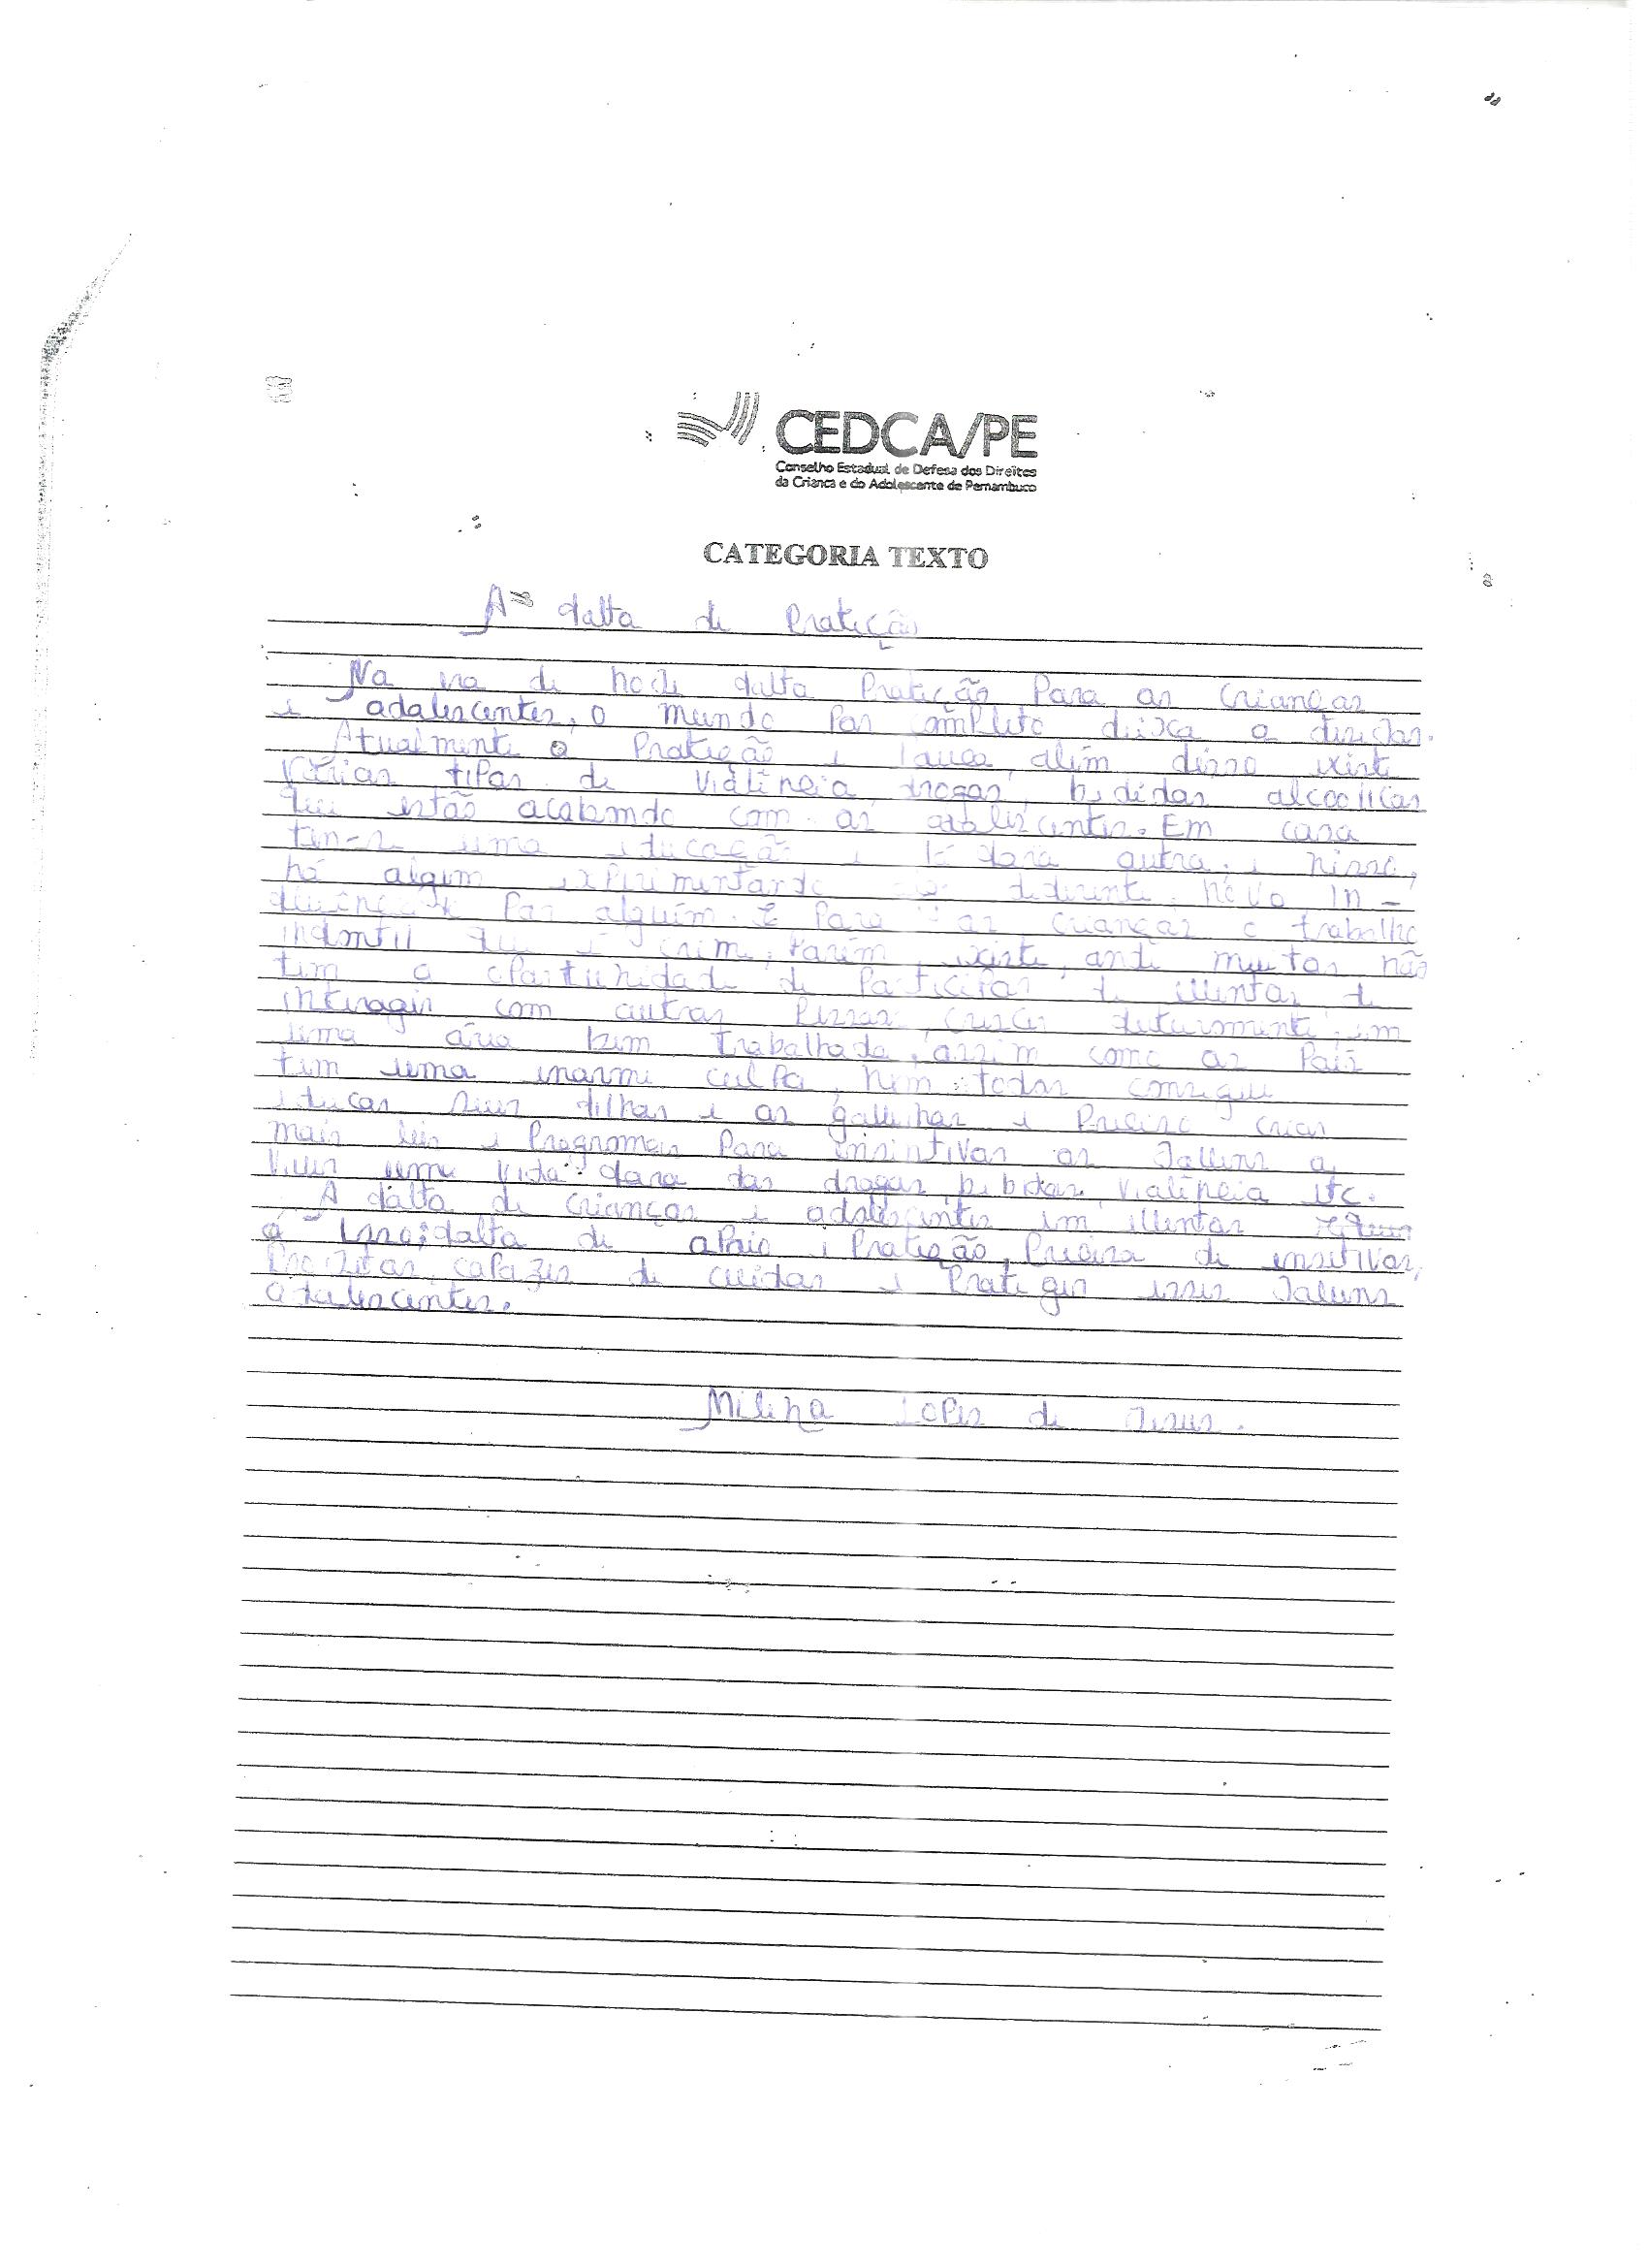 CEDCA/PE
Conselho Estadual de Defesa dos Direitos
da Criança e do Adolescente de Pernambuco
CATEGORIA TEXTO
A falta de Proteção
Na era de hoje falta Proteção Para as crianças
e adolescentes, o mundo por completo deixa a desejar.
Atualmente a Proteção é Pouca, além disso existe
várias tipos de violência, drogas, bebidas alcoolicas
que estão acabando com os adolescentes. Em casa
tem-se uma educação e lá fora outra, e nisso,
há algem experimentando diferente, novo in-
fluência Por alguém. E Para as crianças o trabalho
infantil que é crime, Porém, existe, onde muitos não
tem a oportunidade de Participar de eventos de
interagir com outras Pessoas, crescer futuramente em
uma área bem trabalhada, assim como os Pais
tem uma enorme culpa, nem todos consegue
educar seus filhos e as galinhas é Preciso criar
mais leis e Programas Para insintivar os Jovens a
viver uma vida fora das drogas, bebidas, violência etc.
A falta de crianças e adolescentes em eventos
a isso: falta de apoio e Proteção, Precisa de insetivos,
Projetos capazes de cuidar e Proteger esses Jovens
adolescentes.
Milena Lopes de Jesus.